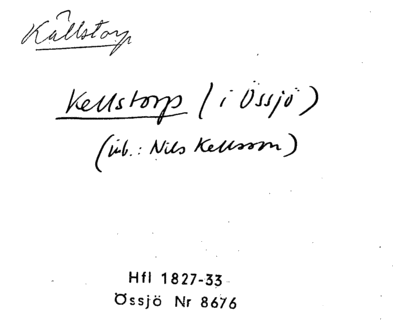 Källstorp
Kellstorp (i Össjö)
(inb.: Nils Kellsson)
Hfl 1827-33
Össjö Nr 8676